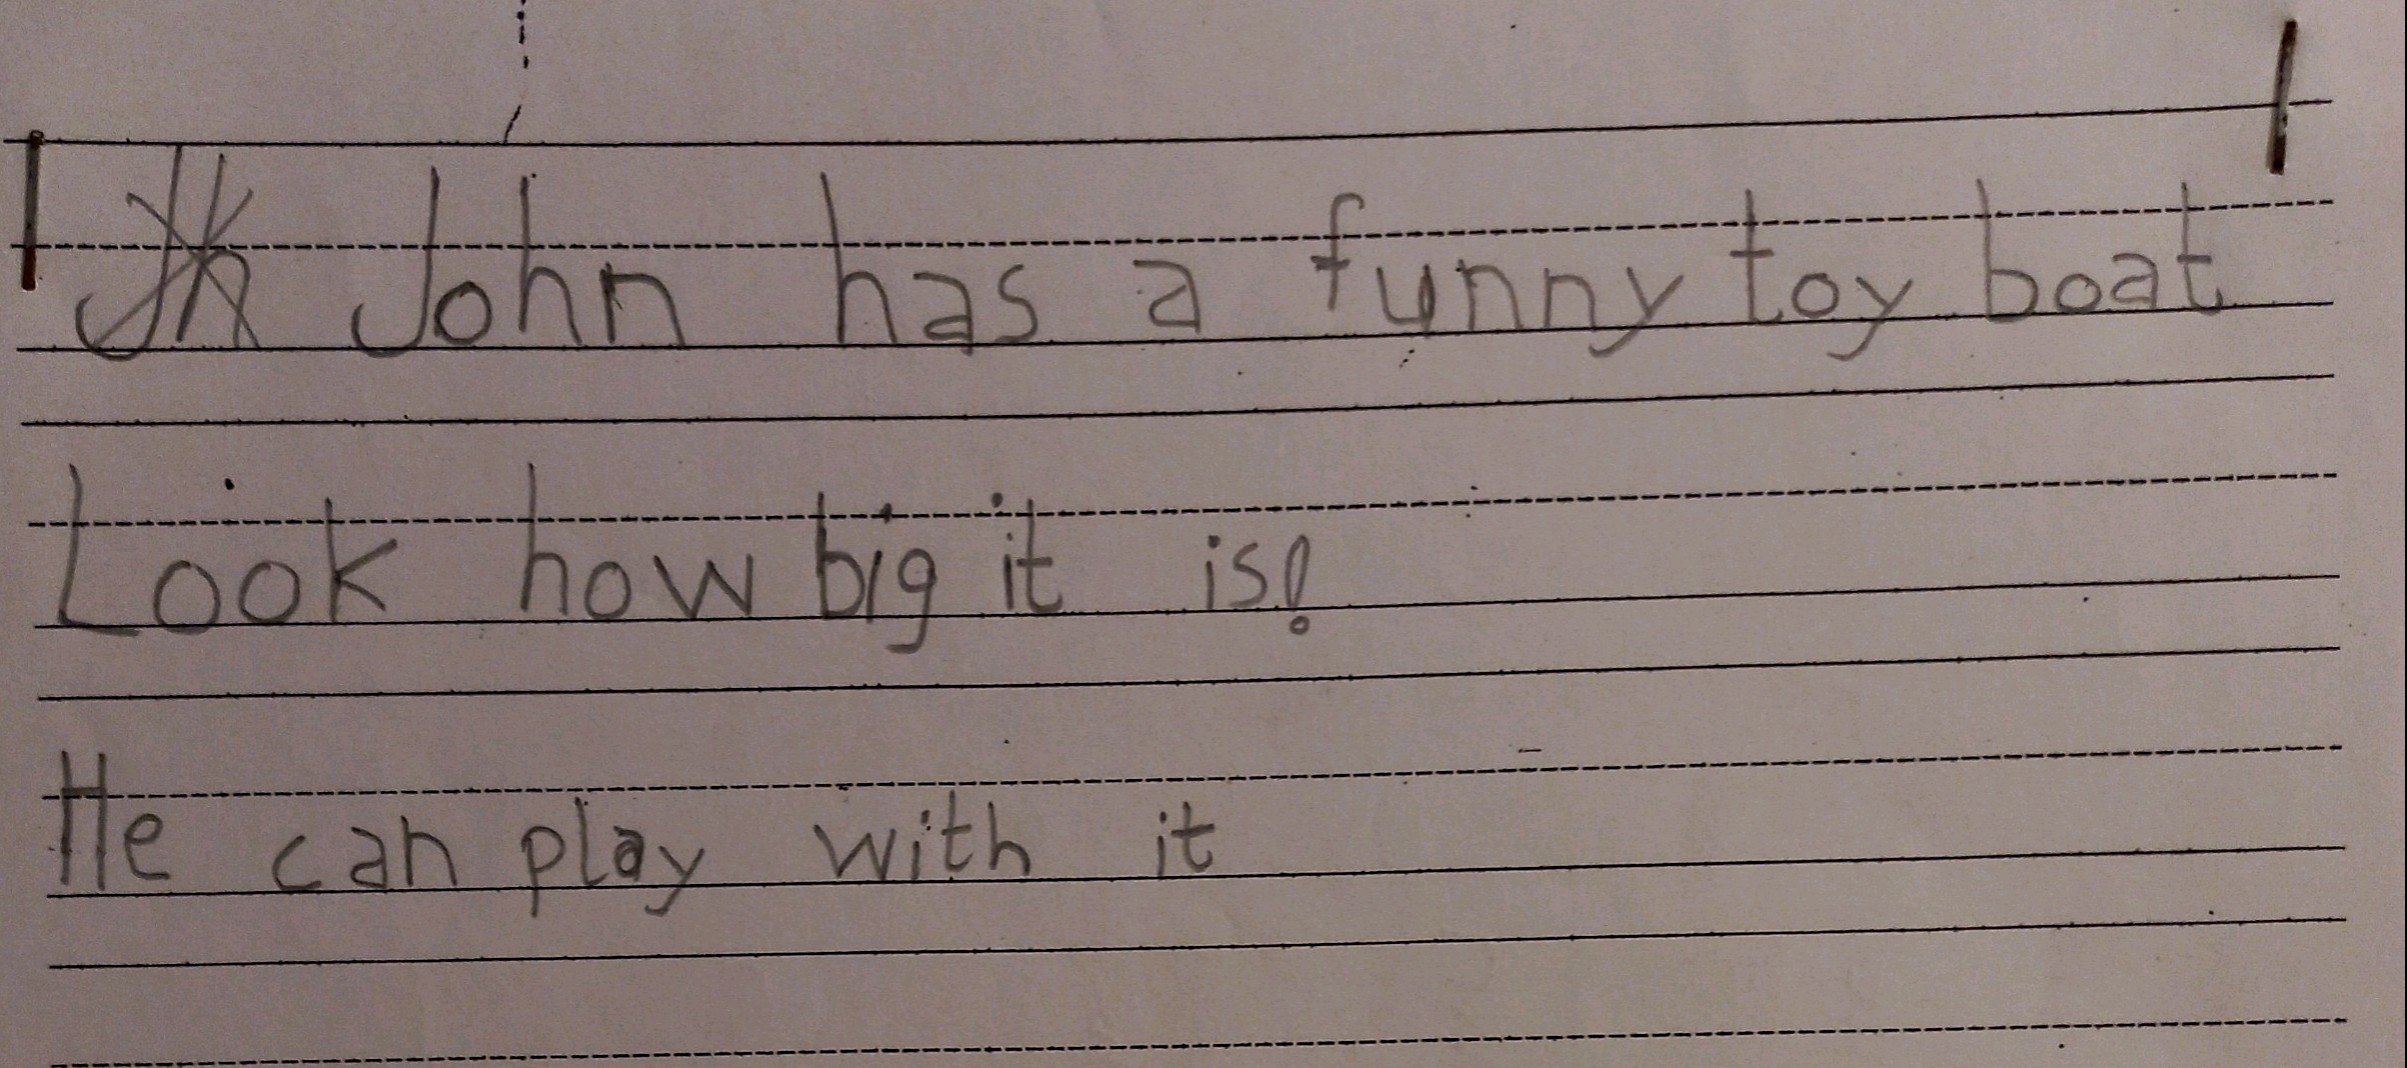 John has a funny toy boat
Look how big it is!
He can play with it